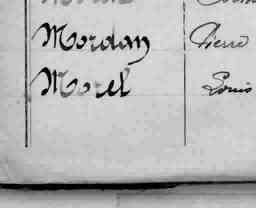 Mordan Pierre
Morel Louis